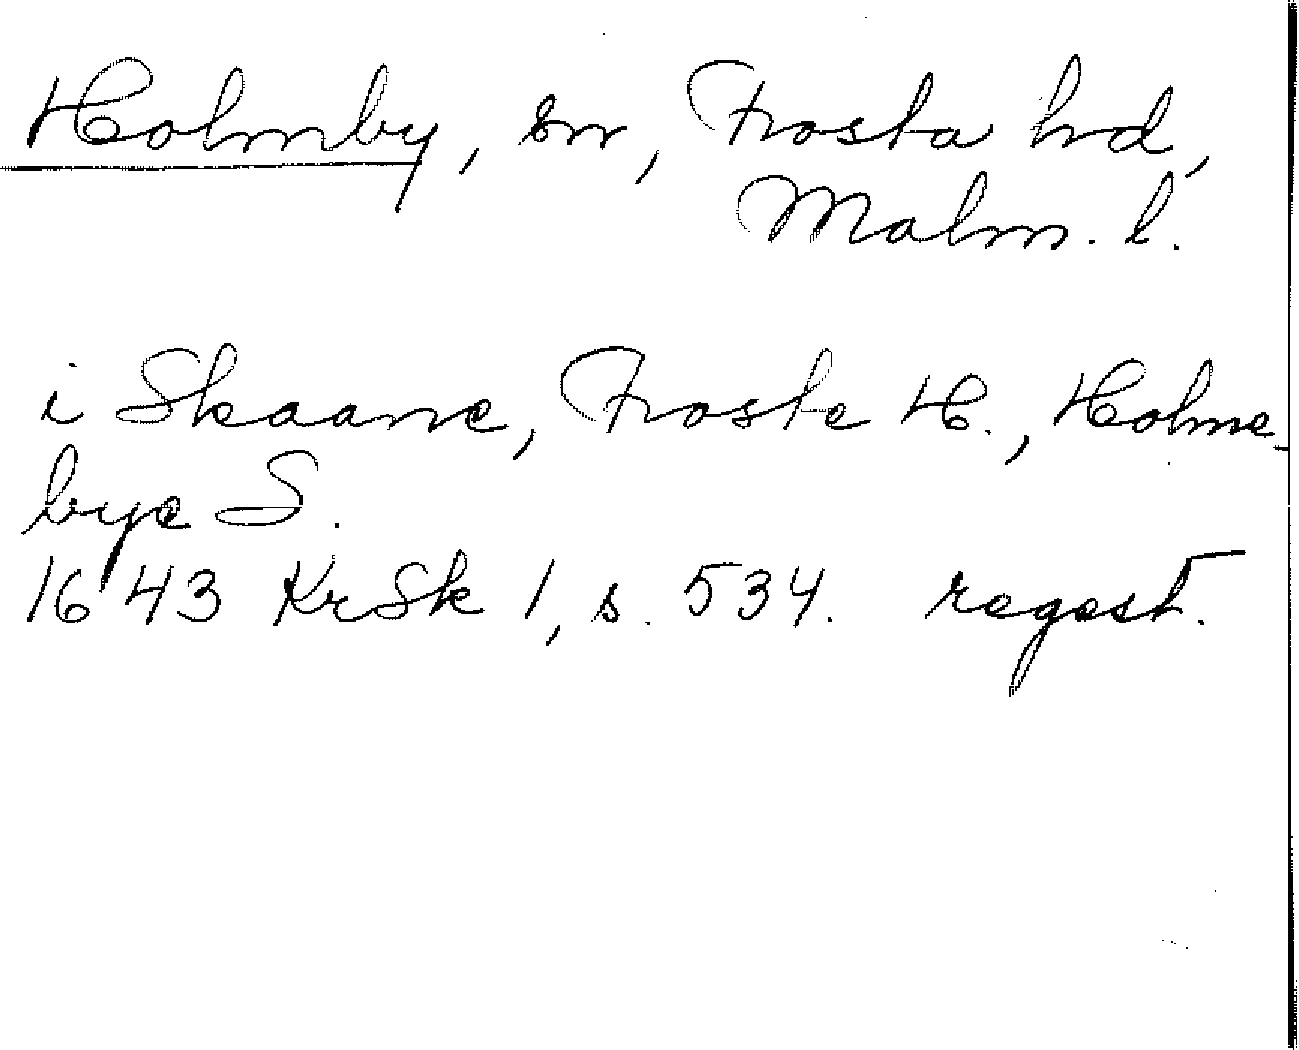 Holmby, sn, Frosta hd,
Malm. l.
i Skaane, Froste H., Holme-
bye S.
1643 KrSk 1, s. 534. regest.